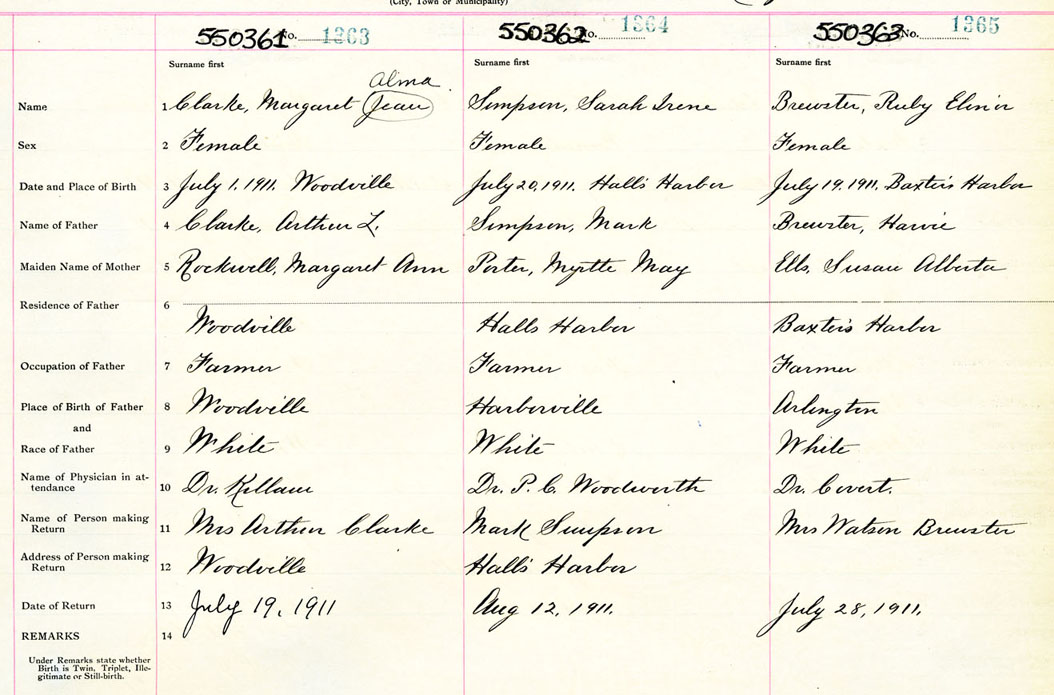 (City, Town or Municipality)
550361 No. 1363 550362 No. 1364 550363 No. 1365
Surname first Surname first Surname first
Alma
Name 1 Clarke, Margaret Jean Simpson, Sarah Irene Brewster, Ruby Elin'r
Sex 2 Female Female Female
Date and Place of Birth 3 July 1. 1911. Woodville July 20, 1911. Hall's Harbor July 19, 1911, Baxter's Harbor
Name of Father 4 Clarke, Arthur L. Simpson, Mark Brewster, Harvie
Maiden Name of Mother 5 Rockwell, Margaret Ann Porter, Myrtle May Ells, Susan Alberta
Residence of Father 6
Woodville Halls Harbor Baxter's Harbor
Occupation of Father 7 Farmer Farmer Farmer
Place of Birth of Father 8 Woodville Harborville Arlington
and
Race of Father 9 White White White
Name of Physician in at-
tendance 10 Dr. Killam Dr. P. C. Woodworth Dr. Covert.
Name of Person making
Return 11 Mrs Arthur Clarke Mark Simpson Mrs Watson Brewster
Address of Person making
Return 12 Woodville Hall's Harbor
Date of Return 13 July 19, 1911 Aug 12, 1911. July 28, 1911.
REMARKS 14
Under Remarks state whether
Birth is Twin, Triplet, Ille-
gitimate or Still-birth.